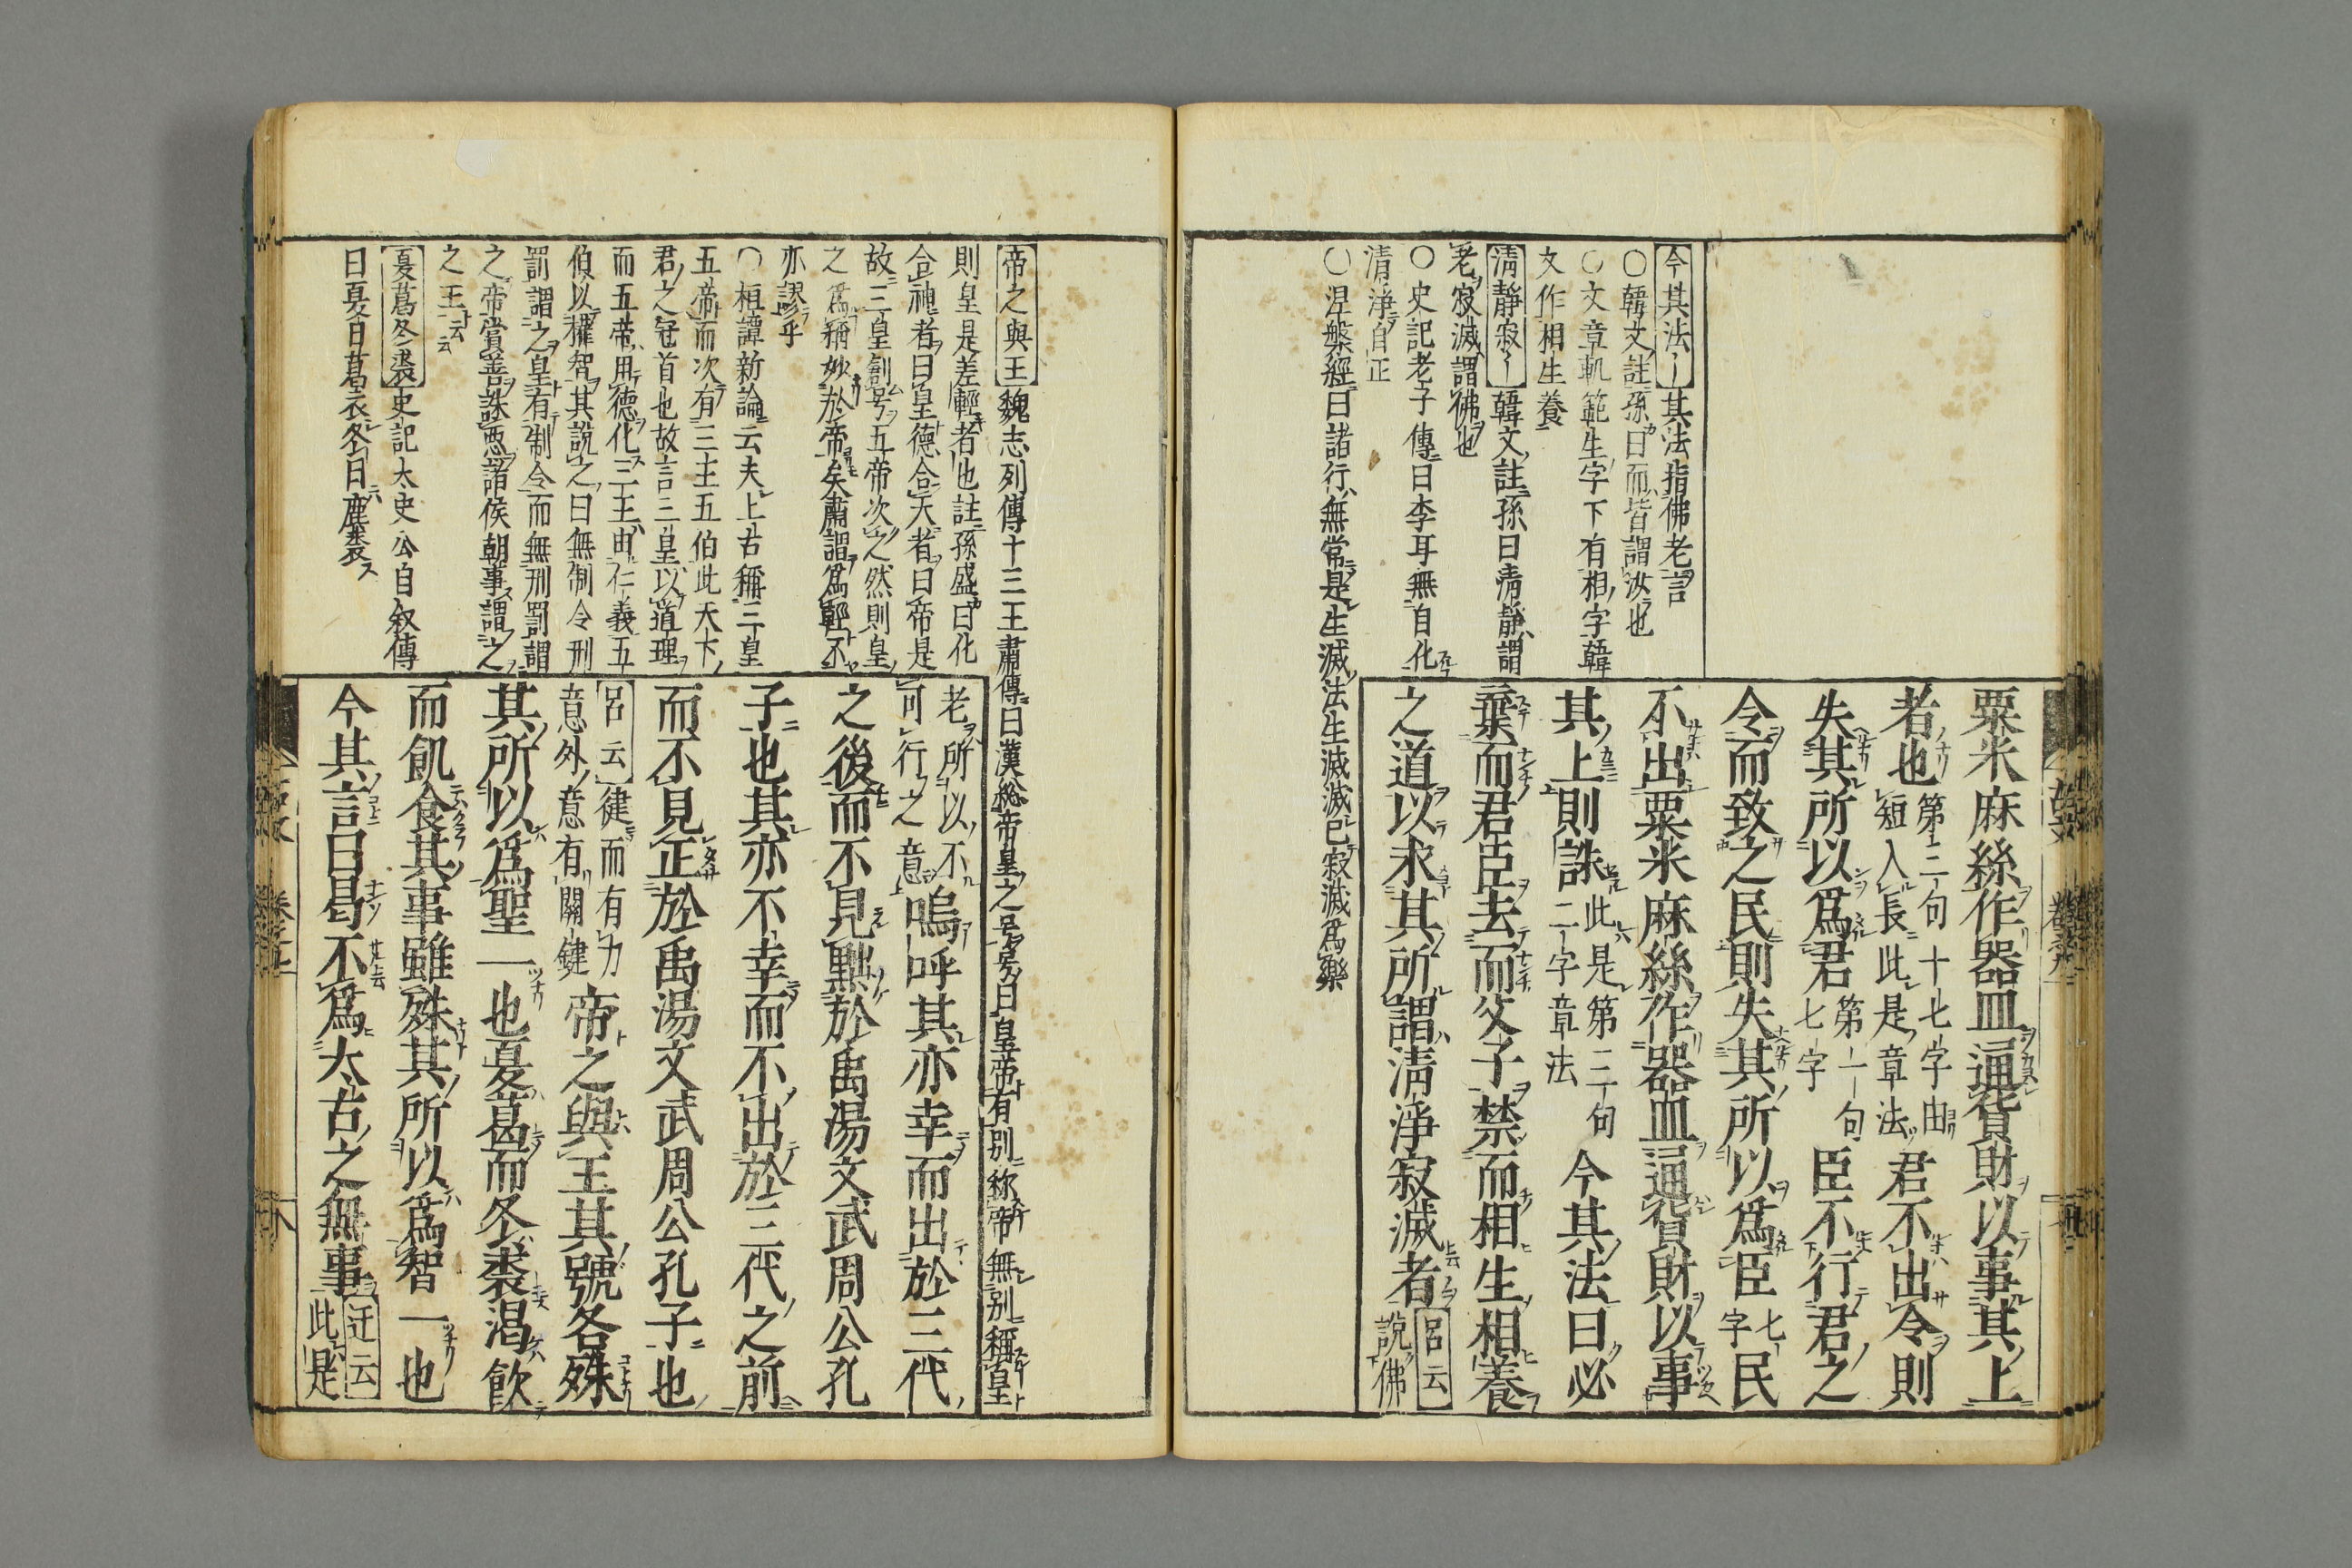 今其法〻其法指佛老言
〇韓文註孫曰而皆謂汝也
〇文章軌範生字下有相字韓
文作相生養
清靜寂〻韓文註孫曰清靜謂
老寂滅謂佛也
〇史記老子傳曰李耳無自化
清淨自正
〇涅槃經曰諸行無常是生滅法生滅滅已寂滅爲樂
粟米麻絲作器皿通貨財以事其上
者也第三句十七字由短入長此是章法君不出令則
失其所以爲君第一句七字臣不行君之
令而致之民則失其所以爲臣七字民
不出粟米麻絲作器皿通貨財以事
其上則誅此是第三句二字章法今其法曰必
棄而君臣去而父子禁而相生相養
之道以求其所謂清淨寂滅者呂云說佛
帝之與王魏志列傳十三王肅傳曰漢總帝皇之号号曰皇帝有別称帝無別稱皇
則皇是差輕者也註孫盛曰化
合神者曰皇德合天者曰帝是
故三皇創号五帝次之然則皇
之爲稱妙於帝矣肅謂爲輕不
亦謬乎
〇桓譚新論云夫上古稱三皇
五帝而次有三王五伯此天下
君之冠首也故言三皇以道理
而五帝用德化三王由仁義五
伯以權智其說之曰無制令刑
罰謂之皇有制令而無刑罰謂
之帝賞善誅惡諸侯朝事謂之
之王云云
夏葛冬裘史記太史公自叙傳
曰夏日葛衣冬日鹿裘
老所以不可行之意嗚呼其亦幸而出於三代
之後而不見黜於禹湯文武周公孔
子也其亦不幸而不出於三代之前
而不見正於禹湯文武周公孔子也
呂云健而有力意外意有關鍵帝之與王其號各殊
其所以爲聖一也夏葛而冬裘渴飲
而飢食其事雖殊其所以爲智一也
今其言曰曷不爲太古之無事迂云此是